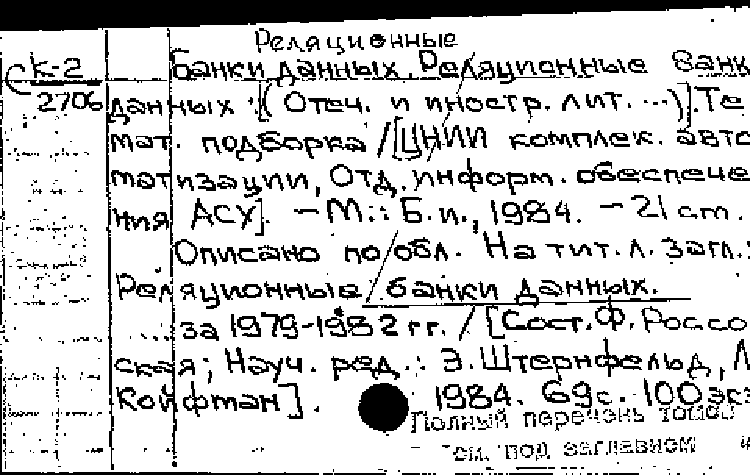 Реляционные
К-2 Банки данных. Реляционные банк
2706 данных : [( Отеч. и иностр. лит. ...)]. Те
мат. подборка / [ЦНИИ комплек. авто
матизации, Отд. информ. обеспече
ния АСУ]. – М.: Б.и., 1984. – 21 cm.
Описано по обл. На тит. л. загл.:
Реляционные банки данных.
за 1979-1982 гг. / [Сост. Ф. Россо
ская; Науч. ред.: Э. Штернфельд, Л
Койфман]. 1984. 69с. 100 экз
Полный перечень томов
см. под заглавием